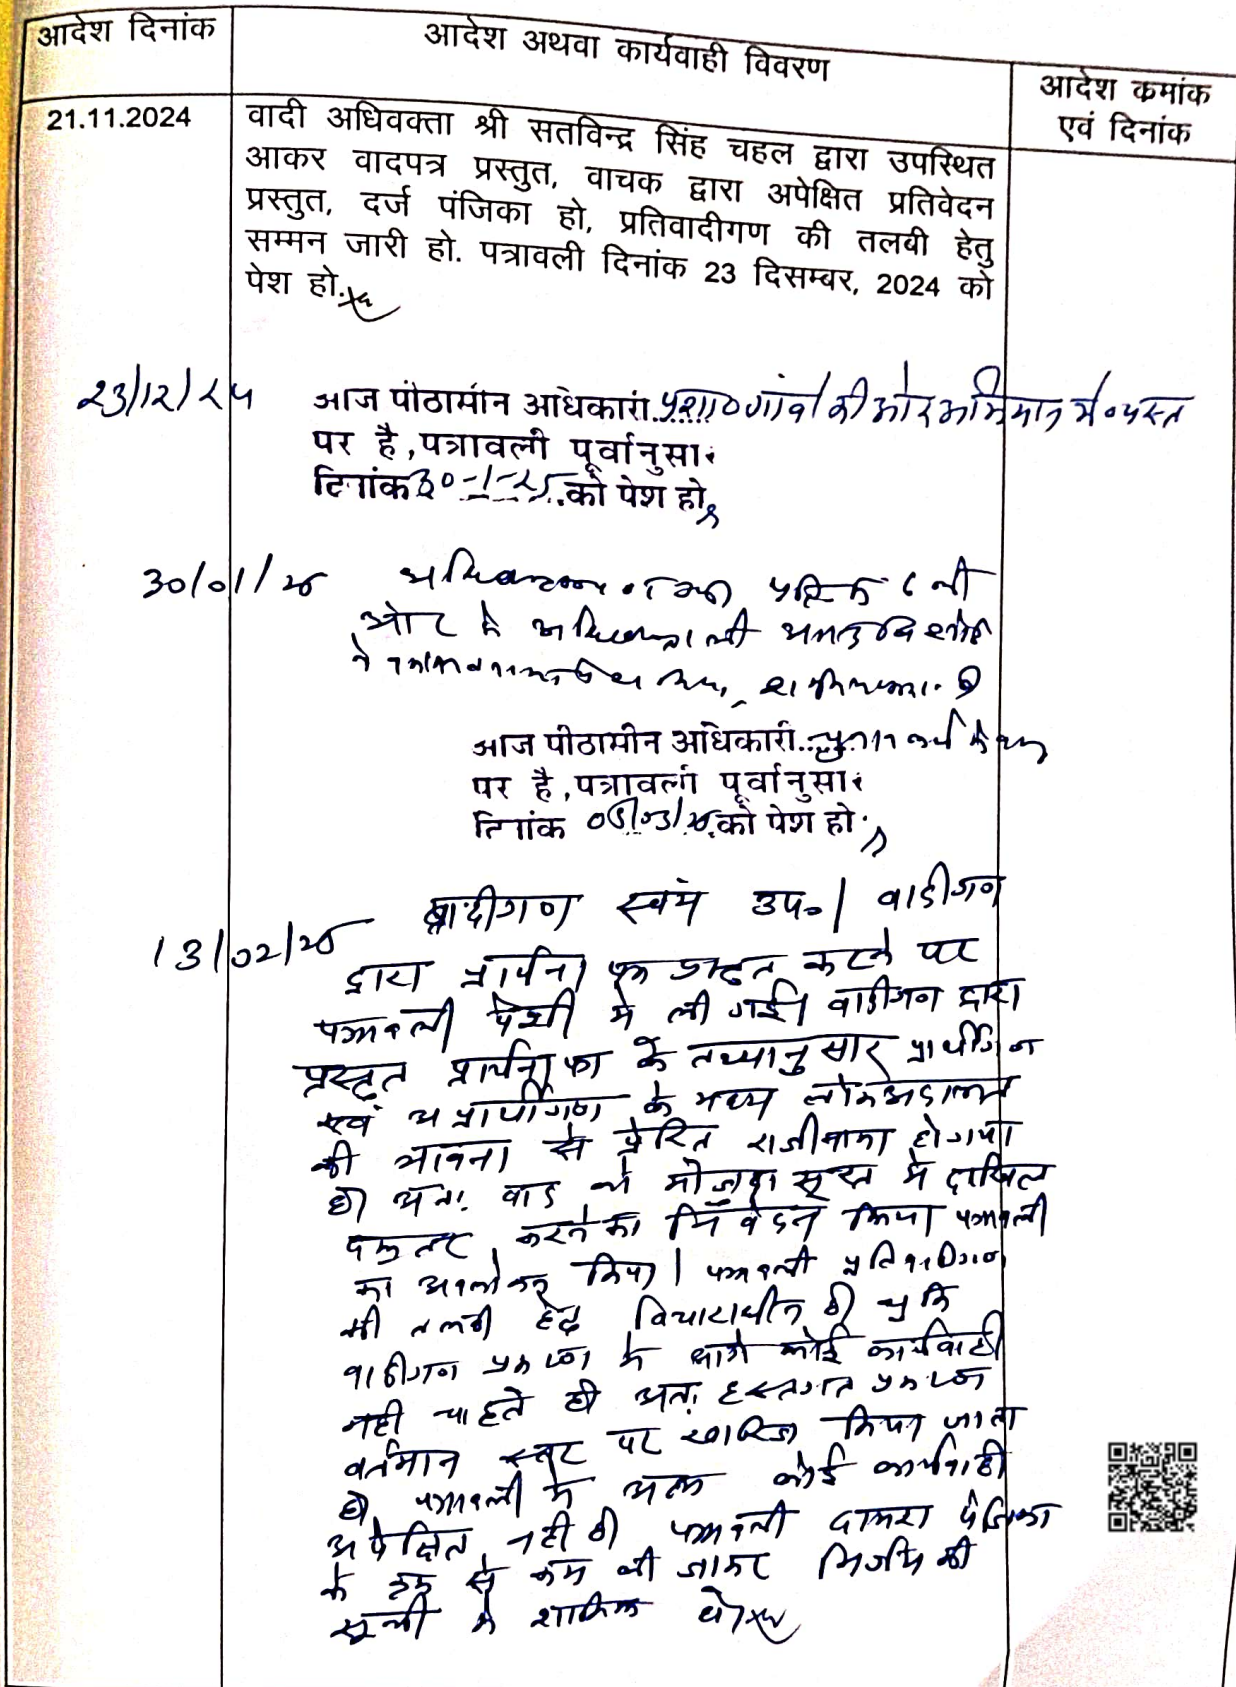 आदेश दिनांक
आदेश अथवा कार्यवाही विवरण
आदेश क्रमांक
एवं दिनांक
21.11.2024
वादी अधिवक्ता श्री सतविन्द्र सिंह चहल द्वारा उपस्थित
आकर वादपत्र प्रस्तुत, वाचक द्वारा अपेक्षित प्रतिवेदन
प्रस्तुत, दर्ज पंजिका हो, प्रतिवादीगण की तलबी हेतु
सम्मन जारी हो. पत्रावली दिनांक 23 दिसम्बर, 2024 को
पेश हो.
23/12/24
आज पीठासीन अधिकारी प्रशा० गांवो की ओर अभियान में व्यस्त
पर है, पत्रावली पूर्वानुसार
दिनांक 30-1-25 को पेश हो
30/01/25
ओर से अधिवक्ता श्री
आज पीठासीन अधिकारी चुनाव कार्य में व्यस्त
पर है, पत्रावली पूर्वानुसार
दिनांक को पेश हो
13/02/25
वादीगण स्वयं उप०। वादीगण
द्वारा प्रार्थना पत्र प्रस्तुत करने पर
पत्रावली पेशी में ली गई। वादीगण द्वारा
प्रस्तुत प्रार्थना पत्र के तथ्यानुसार प्रार्थीगण
एवं अप्रार्थीगण के मध्य लोकअदालत
की भावना से प्रेरित राजीनामा हो गया
है। अतः वाद को मौजूदा सूरत में दाखिल
दफ्तर करने का निवेदन किया। पत्रावली
का अवलोकन किया। पत्रावली प्रतिवादीगण
की तलबी हेतु विचाराधीन है। चुकि
वादीगण प्रकरण में आगे कोई कार्यवाही
नही चाहते है। अतः हस्तगत प्रकरण
वर्तमान स्तर पर खारिज किया जाता
है। पत्रावली में अन्य कोई कार्यवाही
अपेक्षित नही है। पत्रावली दायरा पंजिका
के क्रम से कम की जाकर निर्णय की
सूची में शामिल हो।